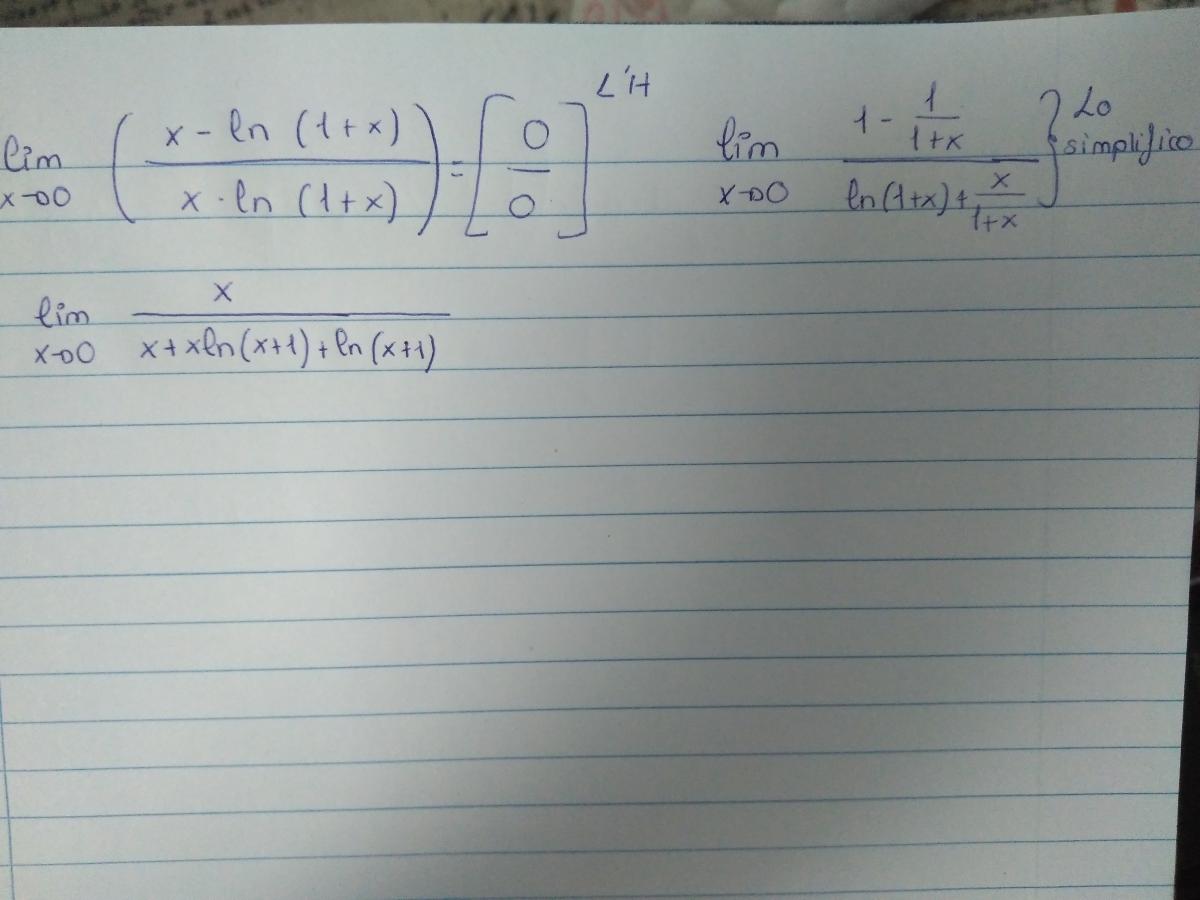 lim x→0 ( x - ln (1+x) / x · ln (1+x) ) = [ 0 / 0 ] L'H lim x→0 1 - 1/1+x / ln(1+x) + x/1+x } Lo simplifico
lim x→0 x / x + xln(x+1) + ln(x+1)